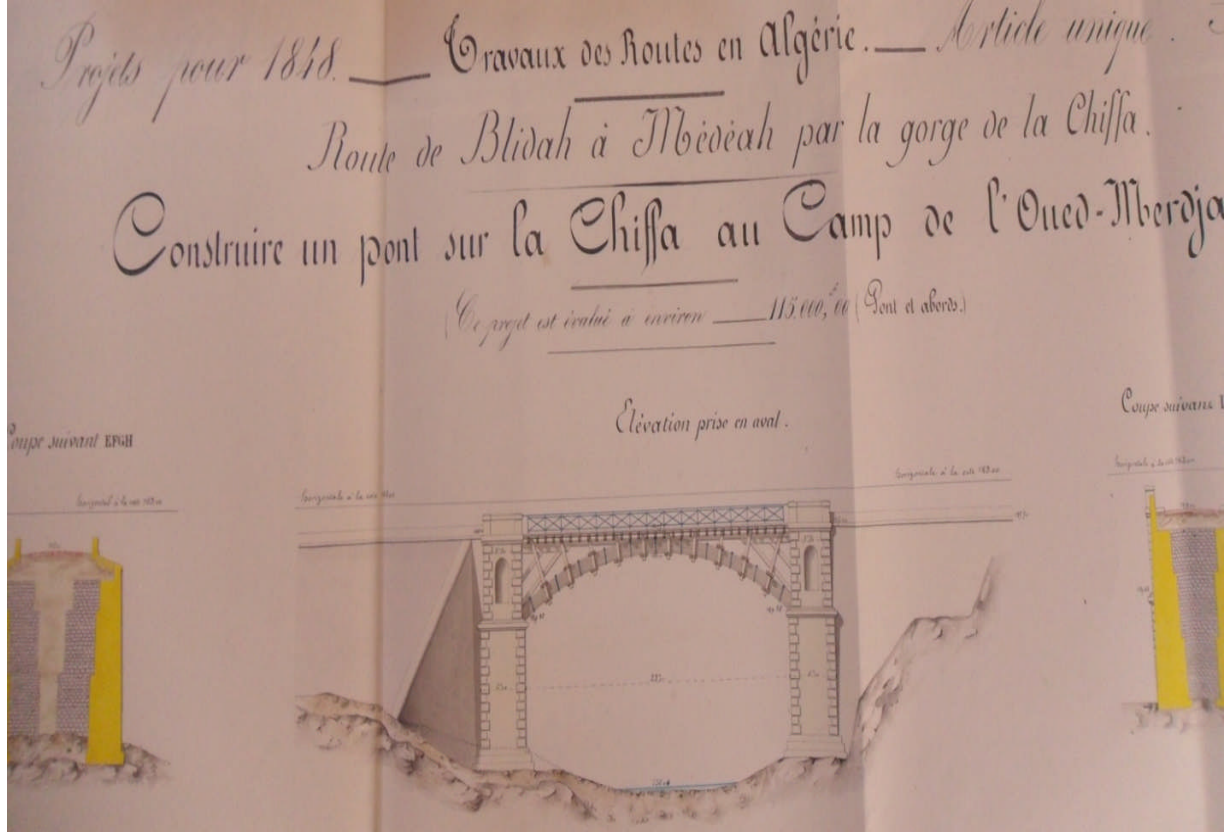 Projets pour 1848. Travaux des Routes en Algérie. Article unique.
Route de Blidah à Médéah par la gorge de la Chiffa.
Construire un pont sur la Chiffa au Camp de l'Oued-Merdja
(Ce projet est évalué à environ 115.000,f00 (Pont et abords.)
Elévation prise en aval.
Coupe suivant EFGH
Coupe suivant